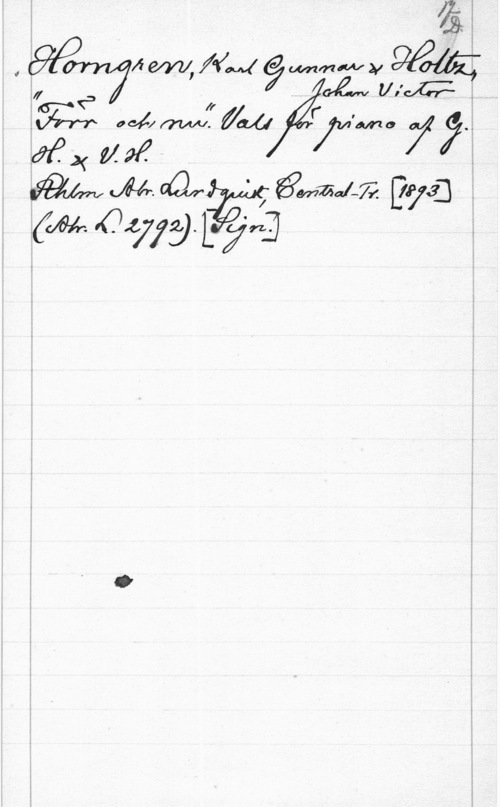 17/D.
Horngren, Karl Gunnar & Holtz,
Johan Victor
"Förr och nu". Vals för piano af G.
H. & V. H.
Sthlm Abr. Lundquist, Central-Tr. [1893]
(Abr. L. 2792). [Sign.]